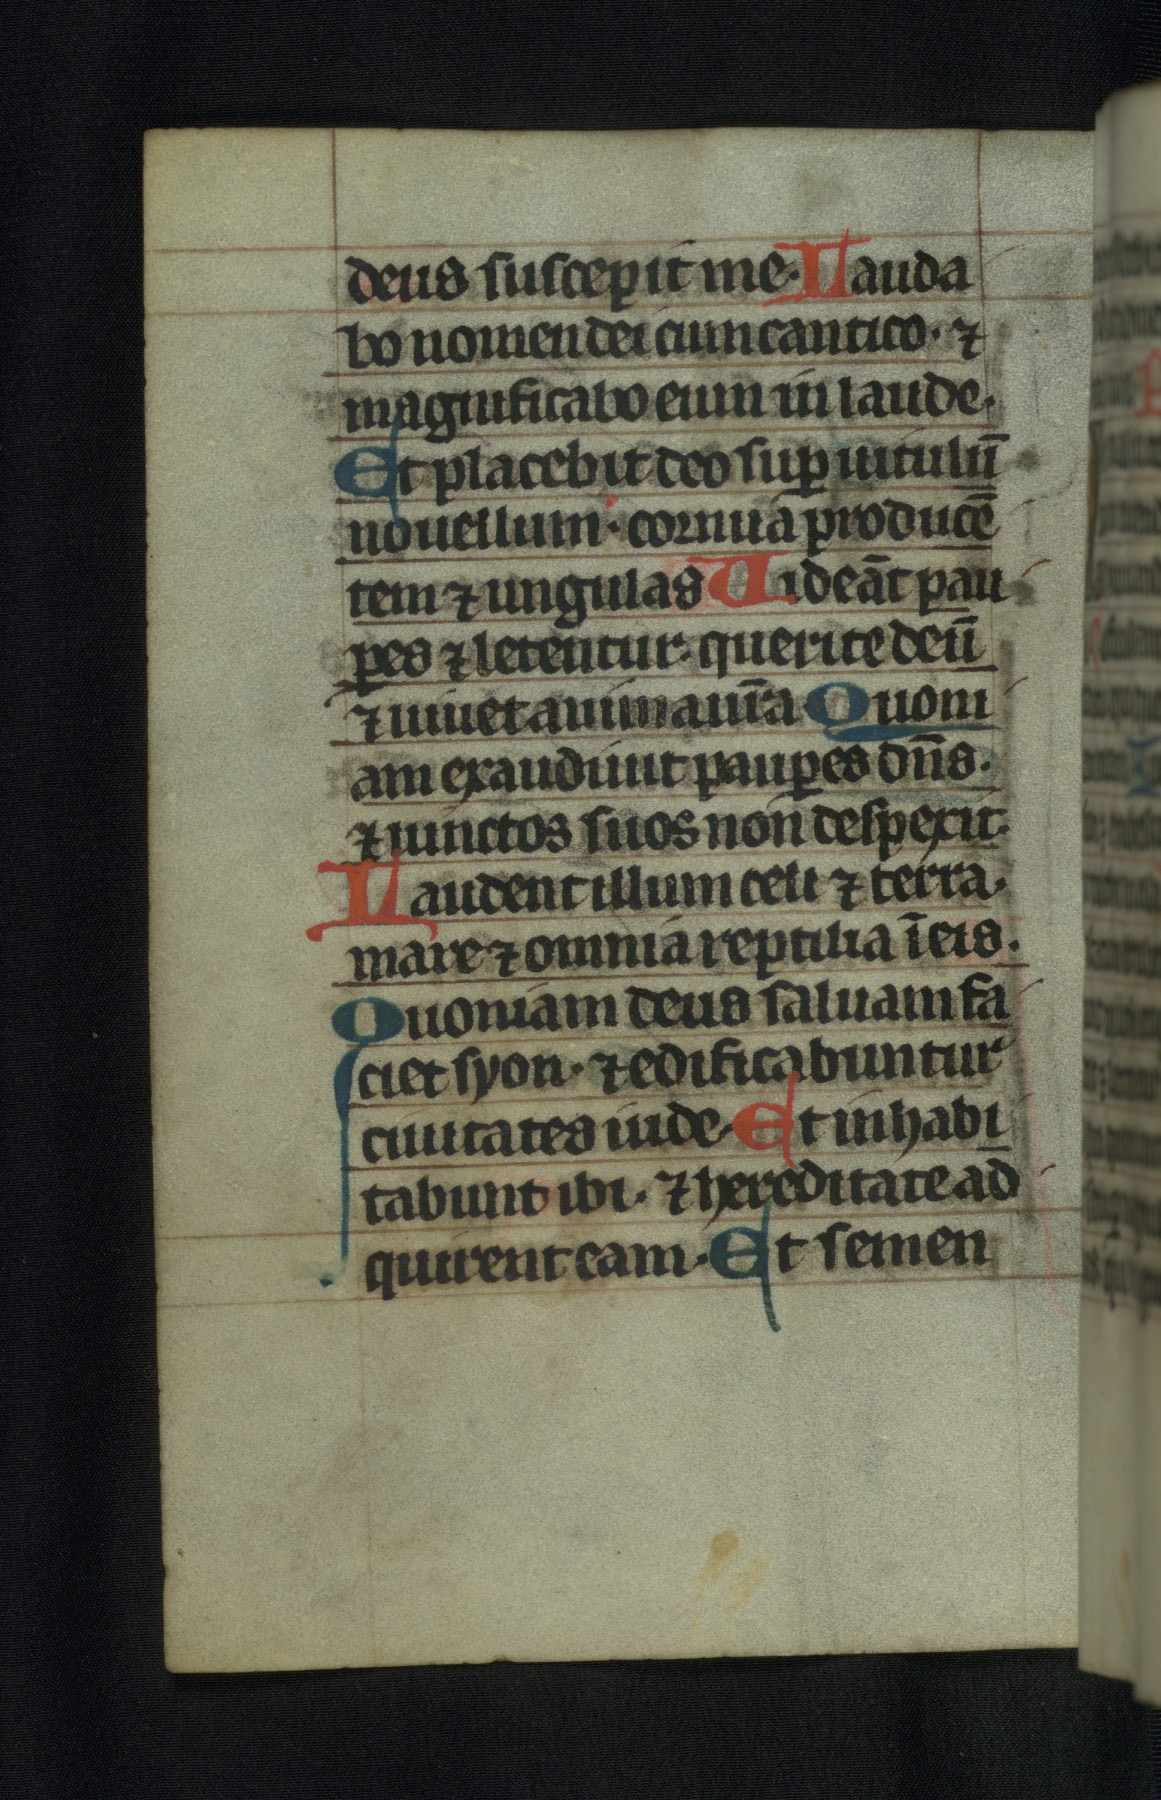 deus suscepit me. Lauda
bo nomen dei cum cantico. ⁊
magnificabo eum in laude.
Et placebit deo suꝑ uitulū
nouellum. cornua producē
tem ⁊ ungulas Uideāt pau
ꝑes ⁊ letentur. querite deū
⁊ uiuet anima ur̄a Quoni
am exaudiuit pauꝑes dn̄s.
⁊ uinctos suos non despexit.
Laudent illum celi ⁊ terra.
mare ⁊ omnia reptilia ī eis.
Quoniam deus saluam fa
ciet syon. ⁊ edificabuntur
ciuitates iude. Et inhabi
tabunt ibi. ⁊ hereditate ad
quirent eam. Et semen